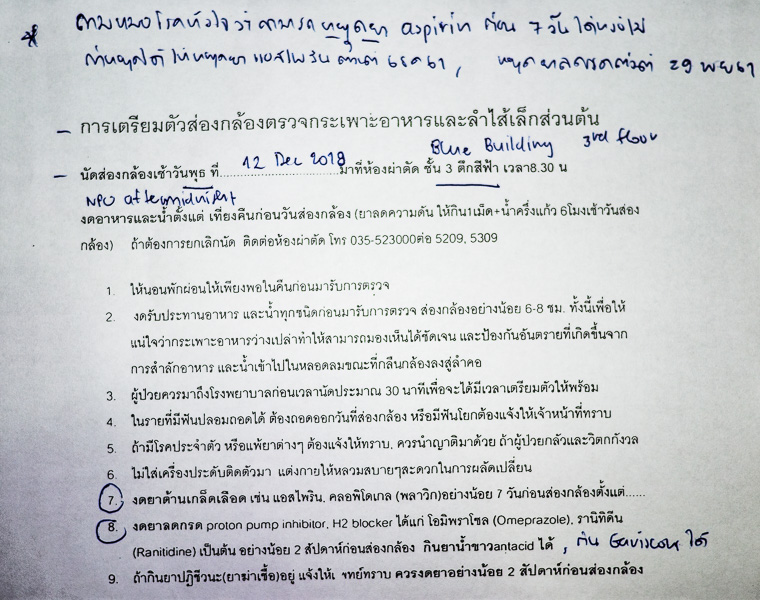 * ถามหมอโรคหัวใจว่าสามารถหยุดยา aspirin ก่อน 7 วัน ได้หรือไม่
ถ้าหยุดได้ ให้หยุดยา แอสไพริน ตั้งแต่ 5 ธค 61, หยุดยาลดกรดตั้งแต่ 29 พย 61
– การเตรียมตัวส่องกล้องตรวจกระเพาะอาหารและลำไส้เล็กส่วนต้น
Blue Building 3rd floor
– นัดส่องกล้องเช้าวันพุธ ที่....12 Dec 2018....มาที่ห้องผ่าตัด ชั้น 3 ตึกสีฟ้า เวลา8.30 น
NPO after midnight
งดอาหารและน้ำตั้งแต่ เที่ยงคืนก่อนวันส่องกล้อง (ยาลดความดัน ให้กิน1เม็ด+น้ำครึ่งแก้ว 6โมงเช้าวันส่อง
กล้อง) ถ้าต้องการยกเลิกนัด ติดต่อห้องผ่าตัด โทร 035-523000ต่อ 5209, 5309
1. ให้นอนพักผ่อนให้เพียงพอในคืนก่อนมารับการตรวจ
2. งดรับประทานอาหาร และน้ำทุกชนิดก่อนมารับการตรวจ ส่องกล้องอย่างน้อย 6-8 ชม. ทั้งนี้เพื่อให้
แน่ใจว่ากระเพาะอาหารว่างเปล่าทำให้สามารถมองเห็นได้ชัดเจน และป้องกันอันตรายที่เกิดขึ้นจาก
การสำลักอาหาร และน้ำเข้าไปในหลอดลมขณะที่กลืนกล้องลงสู่ลำคอ
3. ผู้ป่วยควรมาถึงโรงพยาบาลก่อนเวลานัดประมาณ 30 นาทีเพื่อจะได้มีเวลาเตรียมตัวให้พร้อม
4. ในรายที่มีฟันปลอมถอดได้ ต้องถอดออกวันที่ส่องกล้อง หรือมีฟันโยกต้องแจ้งให้เจ้าหน้าที่ทราบ
5. ถ้ามีโรคประจำตัว หรือแพ้ยาต่างๆ ต้องแจ้งให้ทราบ, ควรนำญาติมาด้วย ถ้าผู้ป่วยกลัวและวิตกกังวล
6. ไม่ใส่เครื่องประดับติดตัวมา แต่งกายให้หลวมสบายๆสะดวกในการผลัดเปลี่ยน
7. งดยาต้านเกล็ดเลือด เช่น แอสไพริน, คลอพิโดเกล (พลาวิก)อย่างน้อย 7 วันก่อนส่องกล้องตั้งแต่......
8. งดยาลดกรด proton pump inhibitor, H2 blocker ได้แก่ โอมิพราโซล (Omeprazole), รานิทิดีน
(Ranitidine) เป็นต้น อย่างน้อย 2 สัปดาห์ก่อนส่องกล้อง กินยาน้ำขาวantacid ได้ , กิน Gaviscon ได้
9. ถ้ากินยาปฏิชีวนะ(ยาฆ่าเชื้อ)อยู่ แจ้งให้แพทย์ทราบ ควรงดยาอย่างน้อย 2 สัปดาห์ก่อนส่องกล้อง